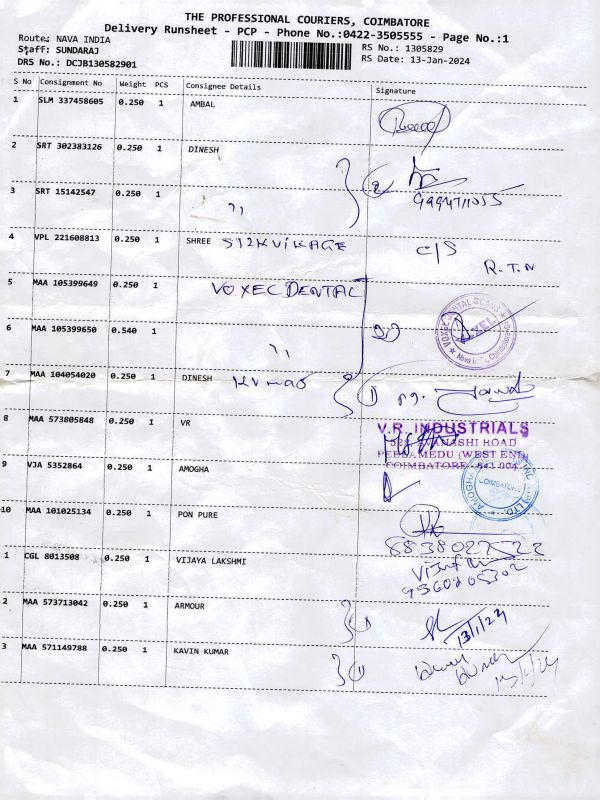 THE PROFESSIONAL COURIERS, COIMBATORE
Delivery Runsheet - PCP - Phone No.:0422-3505555 - Page No.:1
Route: NAVA INDIA
RS No.: 1305829
Staff: SUNDARAJ
RS Date: 13-Jan-2024
DRS No.: DCJB130582901
S No Consignment No Weight PCS Consignee Details Signature
1 SLM 337458605 0.250 1 AMBAL
2 SRT 302383126 0.250 1 DINESH
3 SRT 15142547 0.250 1 ,,
4 VPL 221608813 0.250 1 SHREE C/S
R.T.N
5 MAA 105399649 0.250 1 VOXEC DENTAL
6 MAA 105399650 0.540 1 ,,
VOXEL DENTAL SCANS
VOXEL
7 MAA 104054020 0.250 1 DINESH KUMAR
8 MAA 573805848 0.250 1 VR
V.R. INDUSTRIALS
AVANASHI ROAD
PEELAMEDU (WEST END)
COIMBATORE - 641 004
9 VJA 5352864 0.250 1 AMOGHA
AMOGHA
COIMBATORE
10 MAA 101025134 0.250 1 PON PURE
1 CGL 8013508 0.250 1 VIJAYA LAKSHMI
2 MAA 573713042 0.250 1 ARMOUR
13/1/24
3 MAA 571149788 0.250 1 KAVIN KUMAR
13/1/24